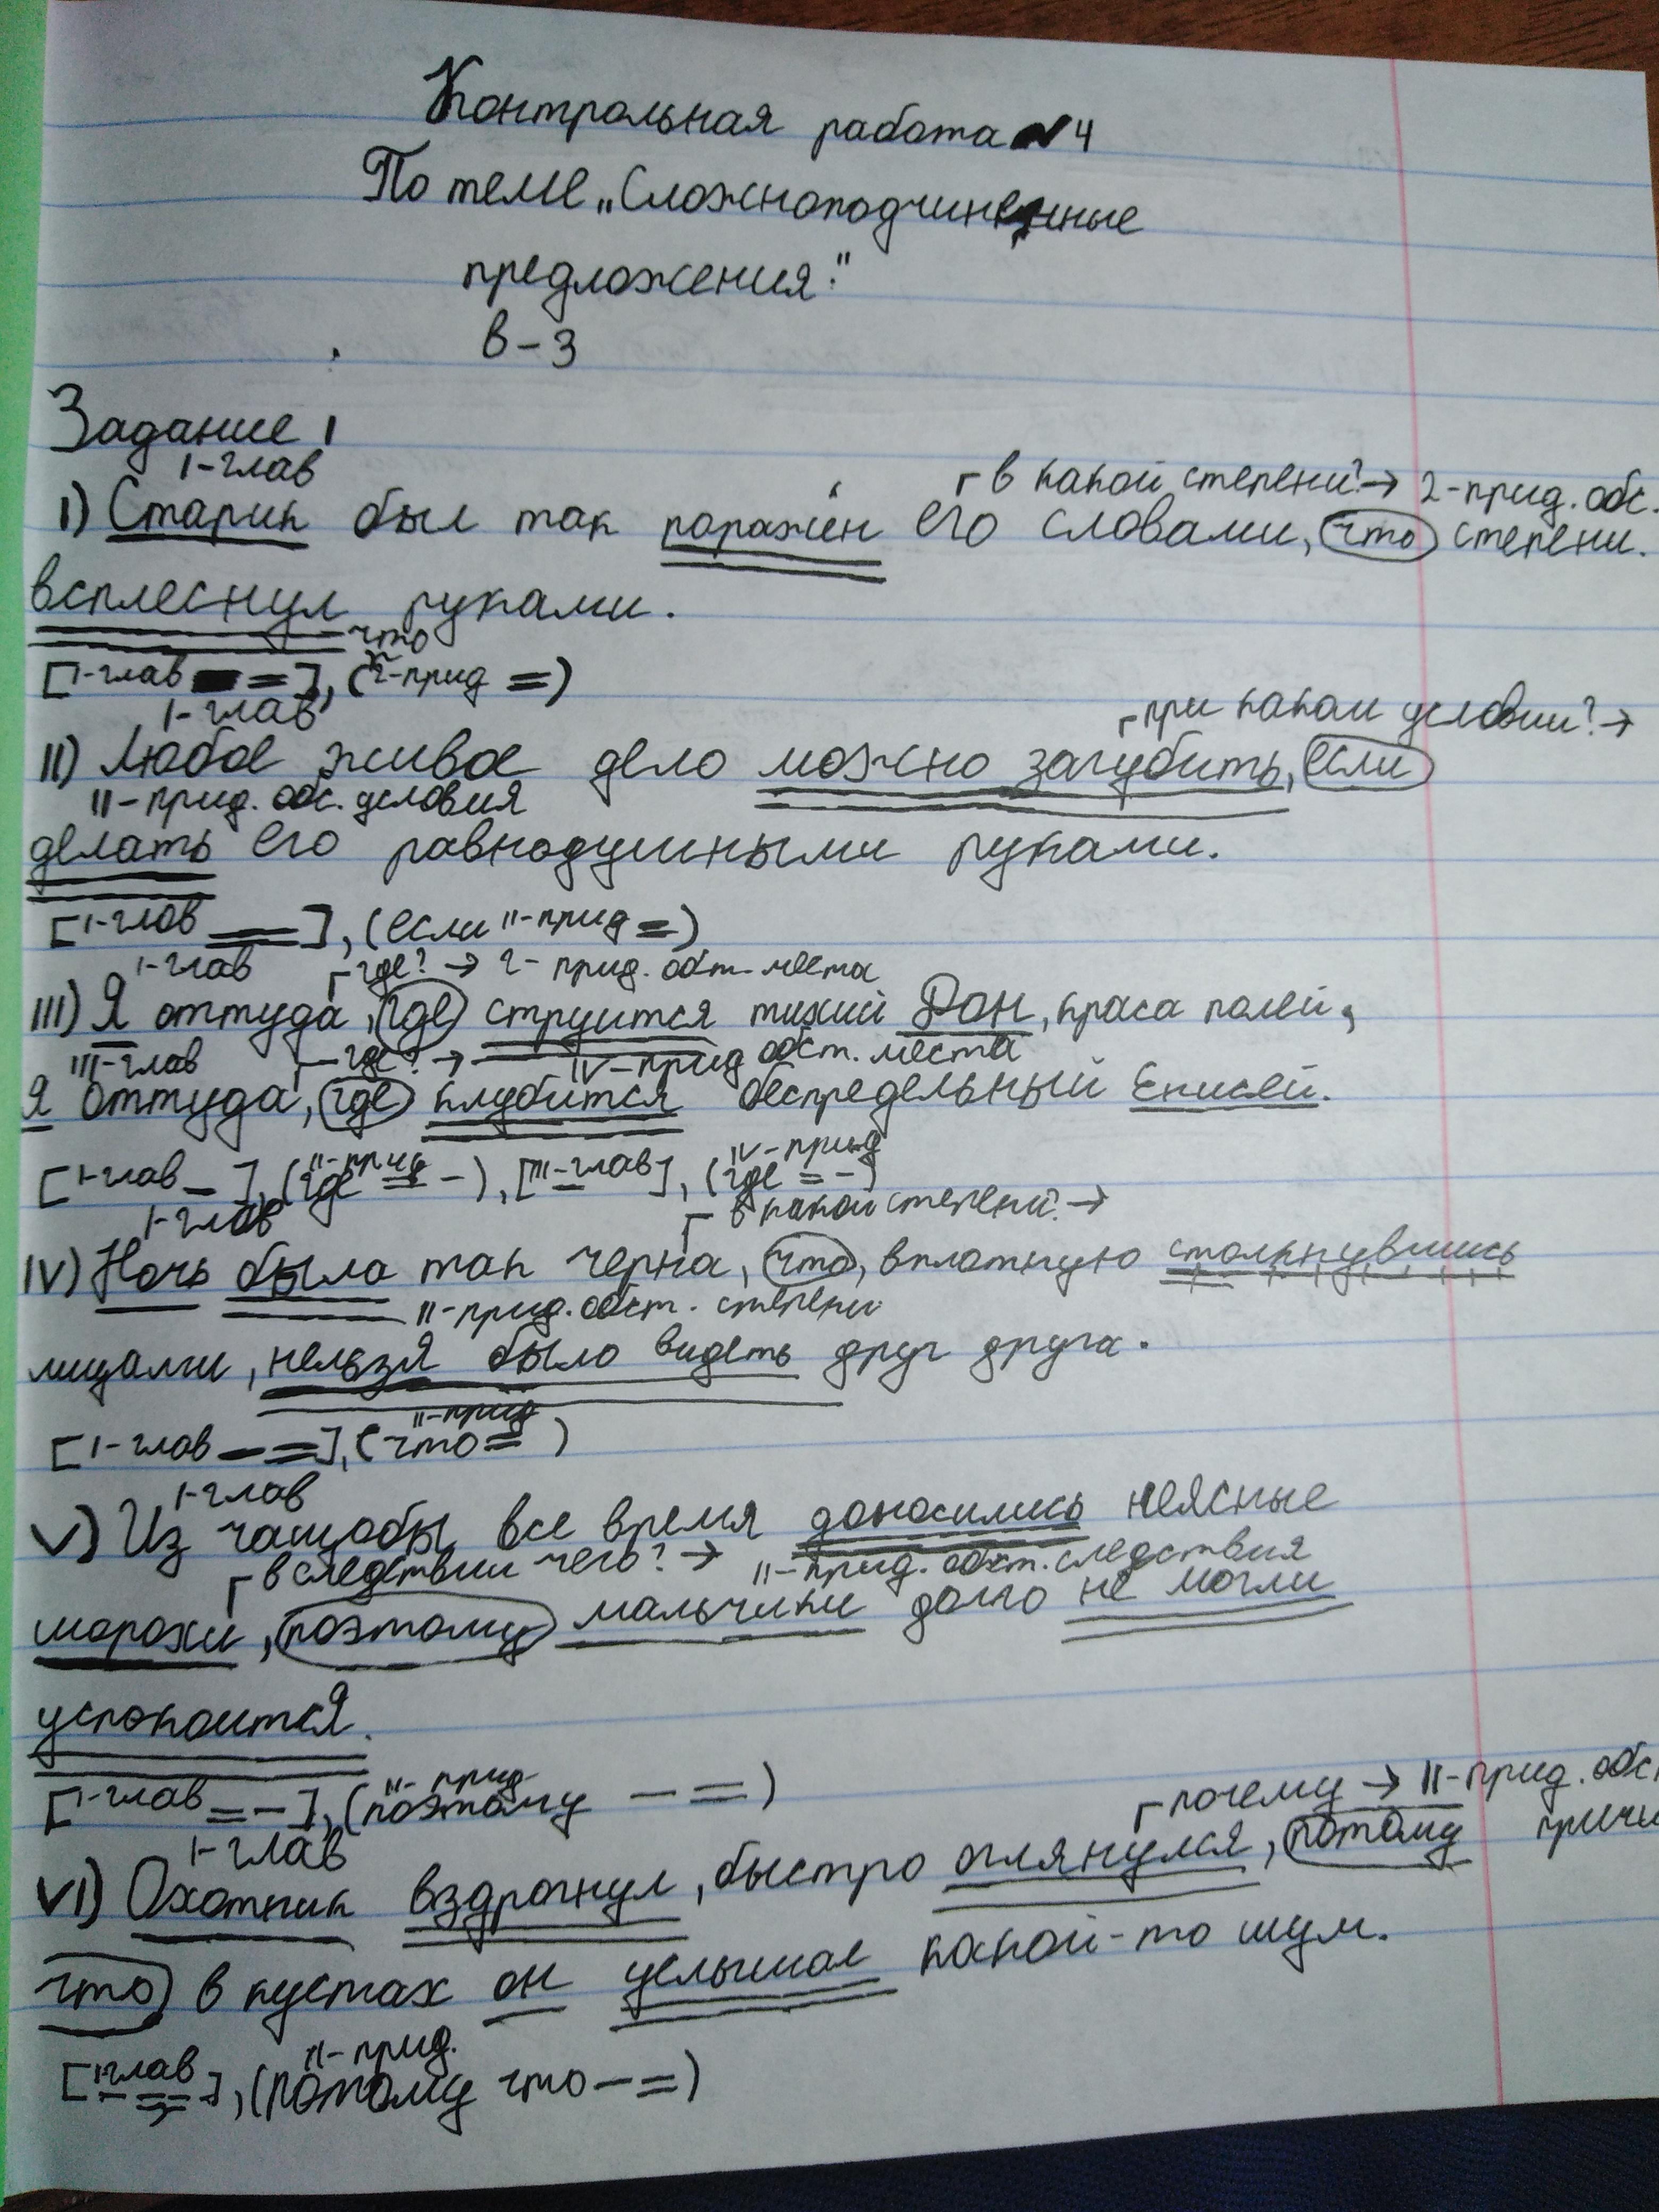 Контрольная работа №4
По теме „Сложноподчиненные
предложения."
В-3
Задание 1
1-глав в какой степени?→ 2-прид. обс.
I) Старик был так поражён его словами, что степени.
всплеснул руками.
что
[1-глав = ], (2-прид =)
1-глав при каком условии?→
II) Любое живое дело можно загубить, если
II-прид. обс. условия
делать его равнодушными руками.
[1-глав = ], (если II-прид =)
1-глав где? → 2- прид. обт. места
III) Я оттуда, где струится тихий Дон, краса полей,
III-глав где? → IV-прид обст. места
Я оттуда, где клубится беспредельный Енисей.
II-прид IV-прид
[1-глав - ], (где = -), [III-глав], (где = -)
1-глав в какой степени?→
IV) Ночь была так черна, что, вплотную столкнувшись
II-прид. обст. степени
лицами, нельзя было видеть друг друга.
II-прид
[1-глав - =], (что = )
1-глав
V) Из чащобы все время доносились неясные
в следствии чего? → II-прид. обст. следствия
шорохи, поэтому мальчики долго не могли
успокоится.
II-прид
[1-глав = -], (поэтому - =)
1-глав почему → II-прид. обс
VI) Охотник вздрогнул, быстро оглянулся, потому причи
что в кустах он услышал какой-то шум.
II-прид.
[1-глав - = =], (потому что - =)